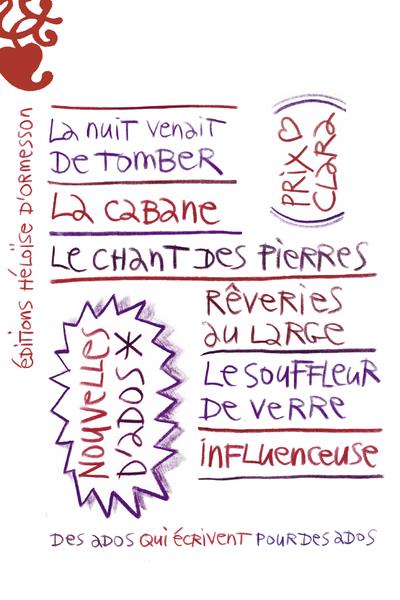 éDITIONS HÉLOÏSE D'ORMESSON
La nuit venait
De tomber
PRIX
CLARA
La cabane
Le chant des pierres
Rêveries
au large
Le souffleur
de verre
Influenceuse
Nouvelles
d'ados*
Des ados qui écrivent pour des ados